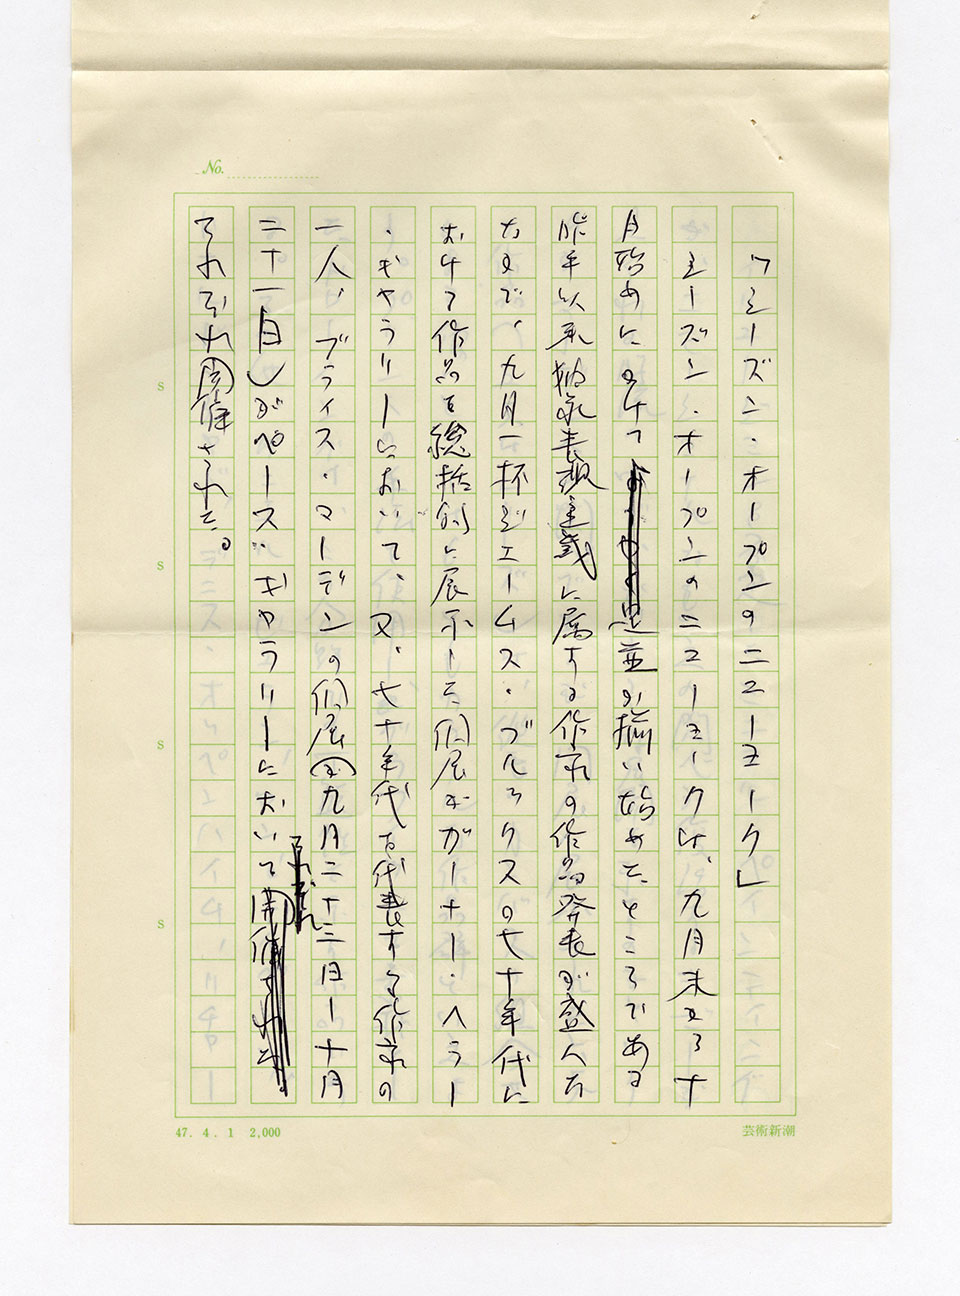 No.
「シーズン・オープンのニューヨーク」
シーズン・オープンのニューヨークは、九月末から十
月始めにかけて足並が揃い始めたところである
昨年以来抽象表現主義に属する作家の作品発表が盛んな
なかで、九月一杯ジェームス・ブルックスの七十年代に
おける作品を総括的に展示した個展がガートナー・ヘラー
・ギャラリーにおいて、又、七十年代を代表する作家の
一人、ブライス・マーデンの個展が九月二十三日—十月
二十一日しがペース・ギャラリーにおいて
それぞれ開催された。
S
S
S
S
47. 4. 1 2,000
芸術新潮